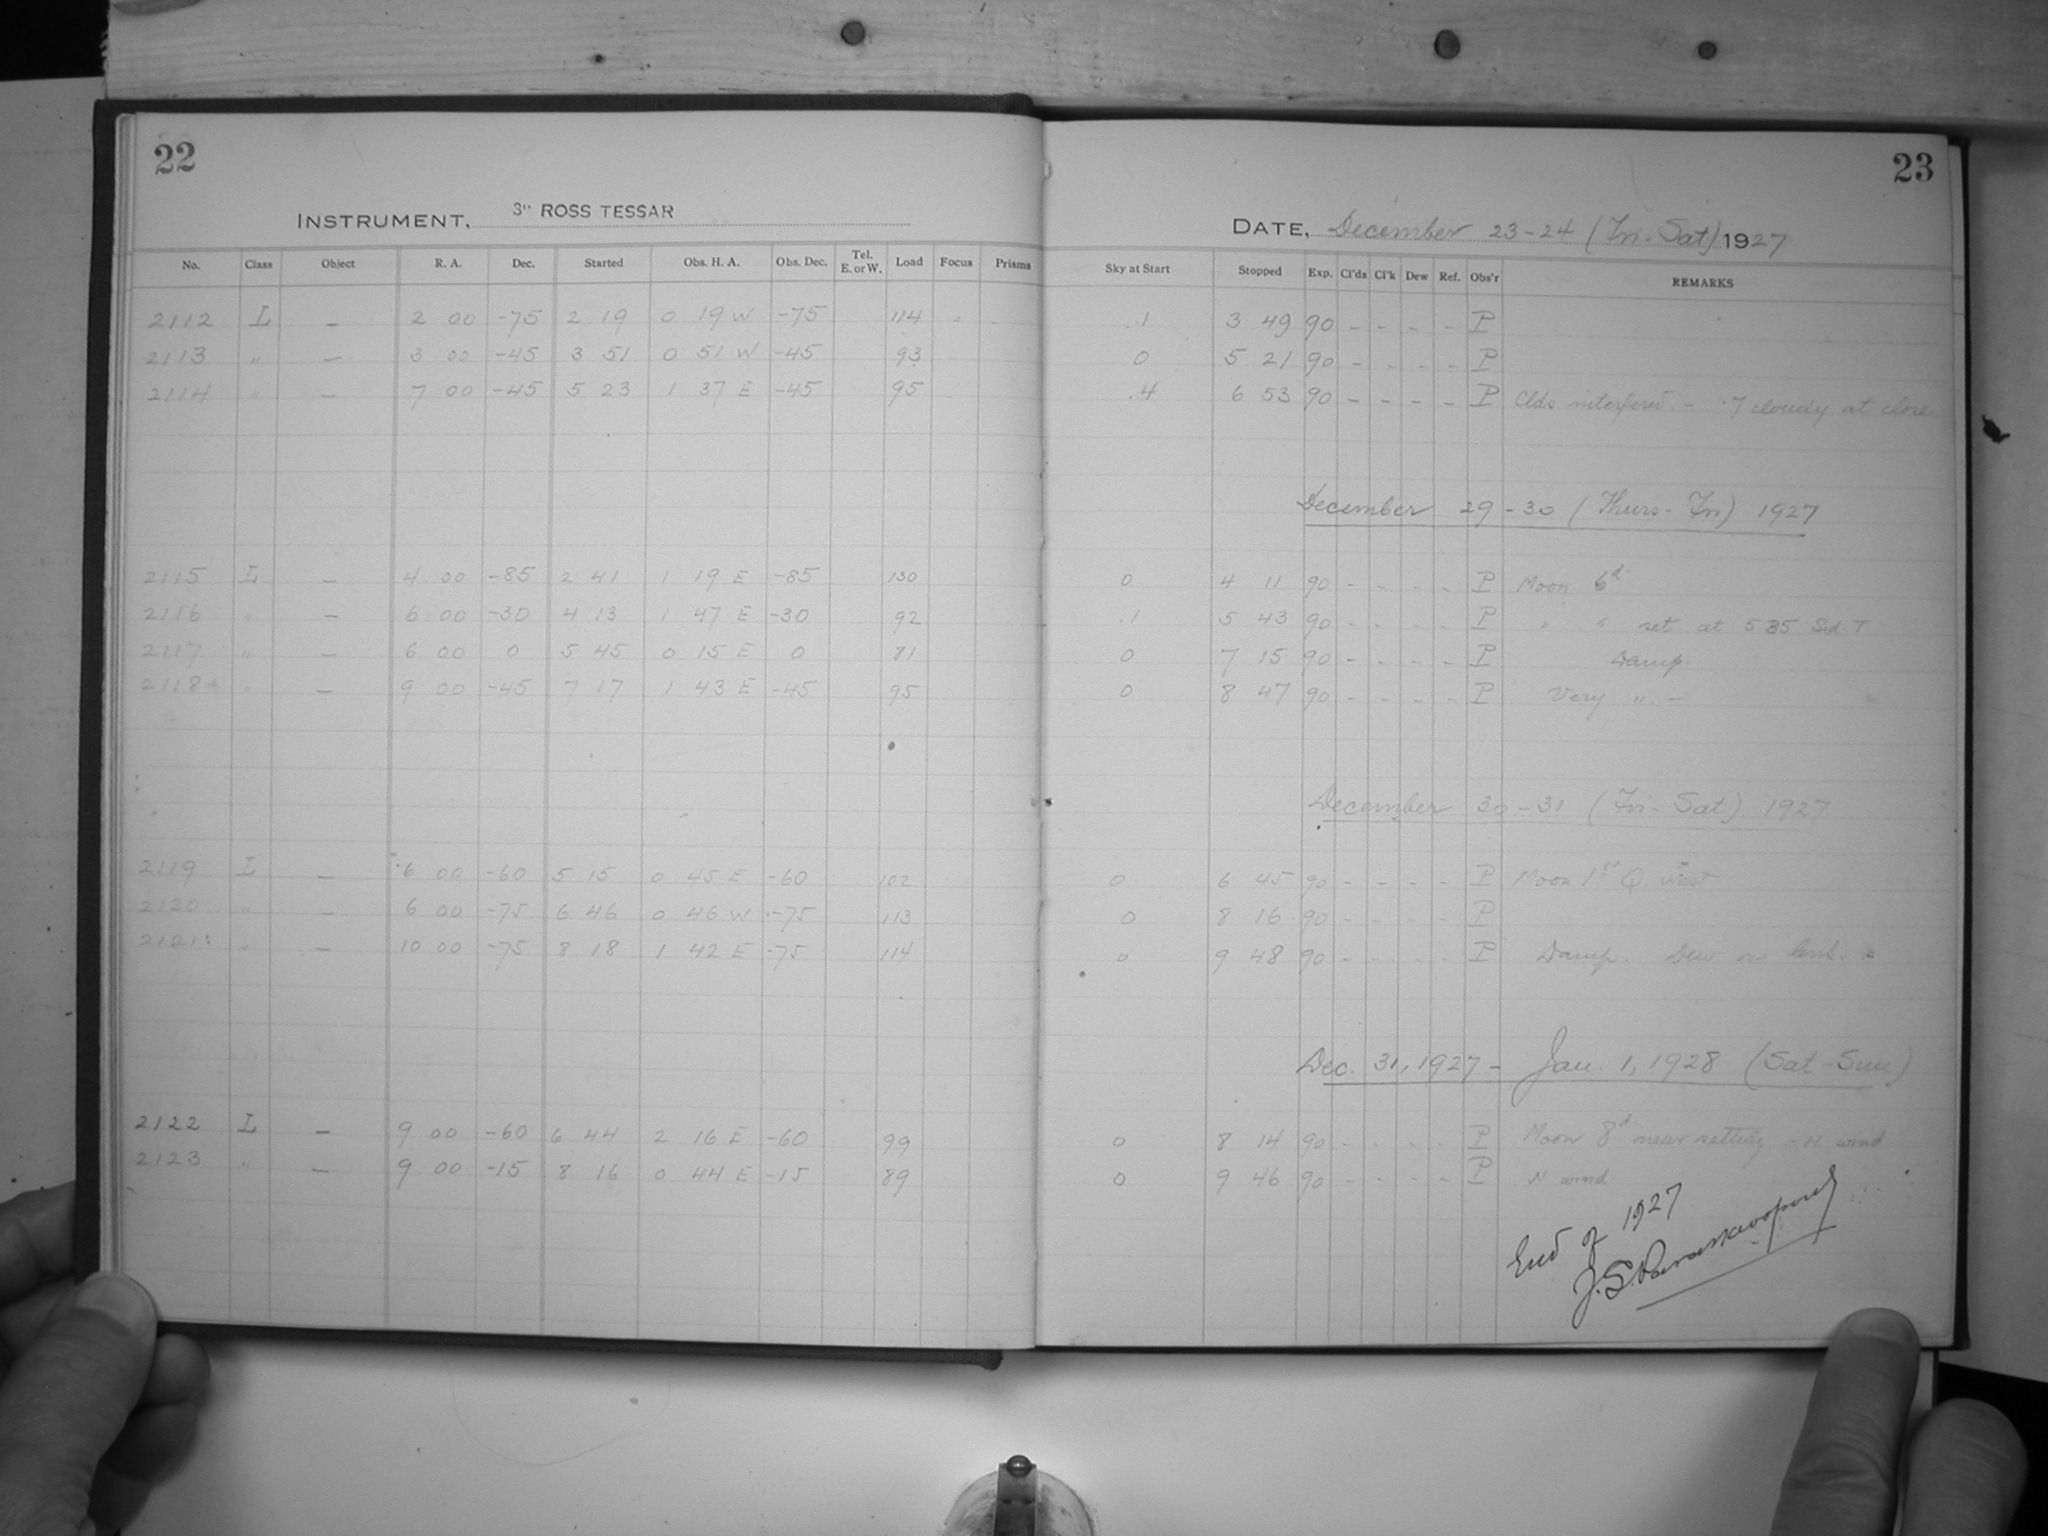 22
INSTRUMENT, 3" ROSS TESSAR
No. Class Object R. A. Dec. Started Obs. H. A. Obs. Dec. Tel. E. or W. Load Focus Prisms
2112 L — 2 00 -75 2 19 0 19 W -75 114
2113 " — 3 00 -45 3 51 0 51 W -45 93
2114 " — 7 00 -45 5 23 1 37 E -45 95
2115 L — 4 00 -85 2 41 1 19 E -85 130
2116 " — 6 00 -30 4 13 1 47 E -30 92
2117 " — 6 00 0 5 45 0 15 E 0 81
2118 " — 9 00 -45 7 17 1 43 E -45 95
2119 L — 6 00 -60 5 15 0 45 E -60 102
2120 " — 6 00 -75 6 46 0 46 W -75 113
2121 " — 10 00 -75 8 18 1 42 E -75 114
2122 L — 9 00 -60 6 44 2 16 E -60 99
2123 " — 9 00 -15 8 16 0 44 E -15 89
23
DATE, December 23-24 (Fri-Sat) 1927
Sky at Start Stopped Exp. Cl'ds Cl'k Dew Ref. Obs'r REMARKS
.1 3 49 90 - - - - P
0 5 21 90 - - - - P
.4 6 53 90 - - - - P Clds interfered. - .7 cloudy at close
December 29-30 (Thurs-Fri) 1927
0 4 11 90 - - - - P Moon 6d
.1 5 43 90 - - - - P " " set at 5 35 Sid. T
0 7 15 90 - - - - P Damp
0 8 47 90 - - - - P Very " -
December 30-31 (Fri-Sat) 1927
0 6 45 90 - - - - P Moon 1st Q. west
0 8 16 90 - - - - P
0 9 48 90 - - - - P Damp. Dew on lens.
Dec. 31, 1927 - Jan. 1, 1928 (Sat-Sun)
0 8 14 90 - - - - P Moon 8d near setting - N wind
0 9 46 90 - - - - P N wind
End of 1927
J. S. Paraskevopoulos